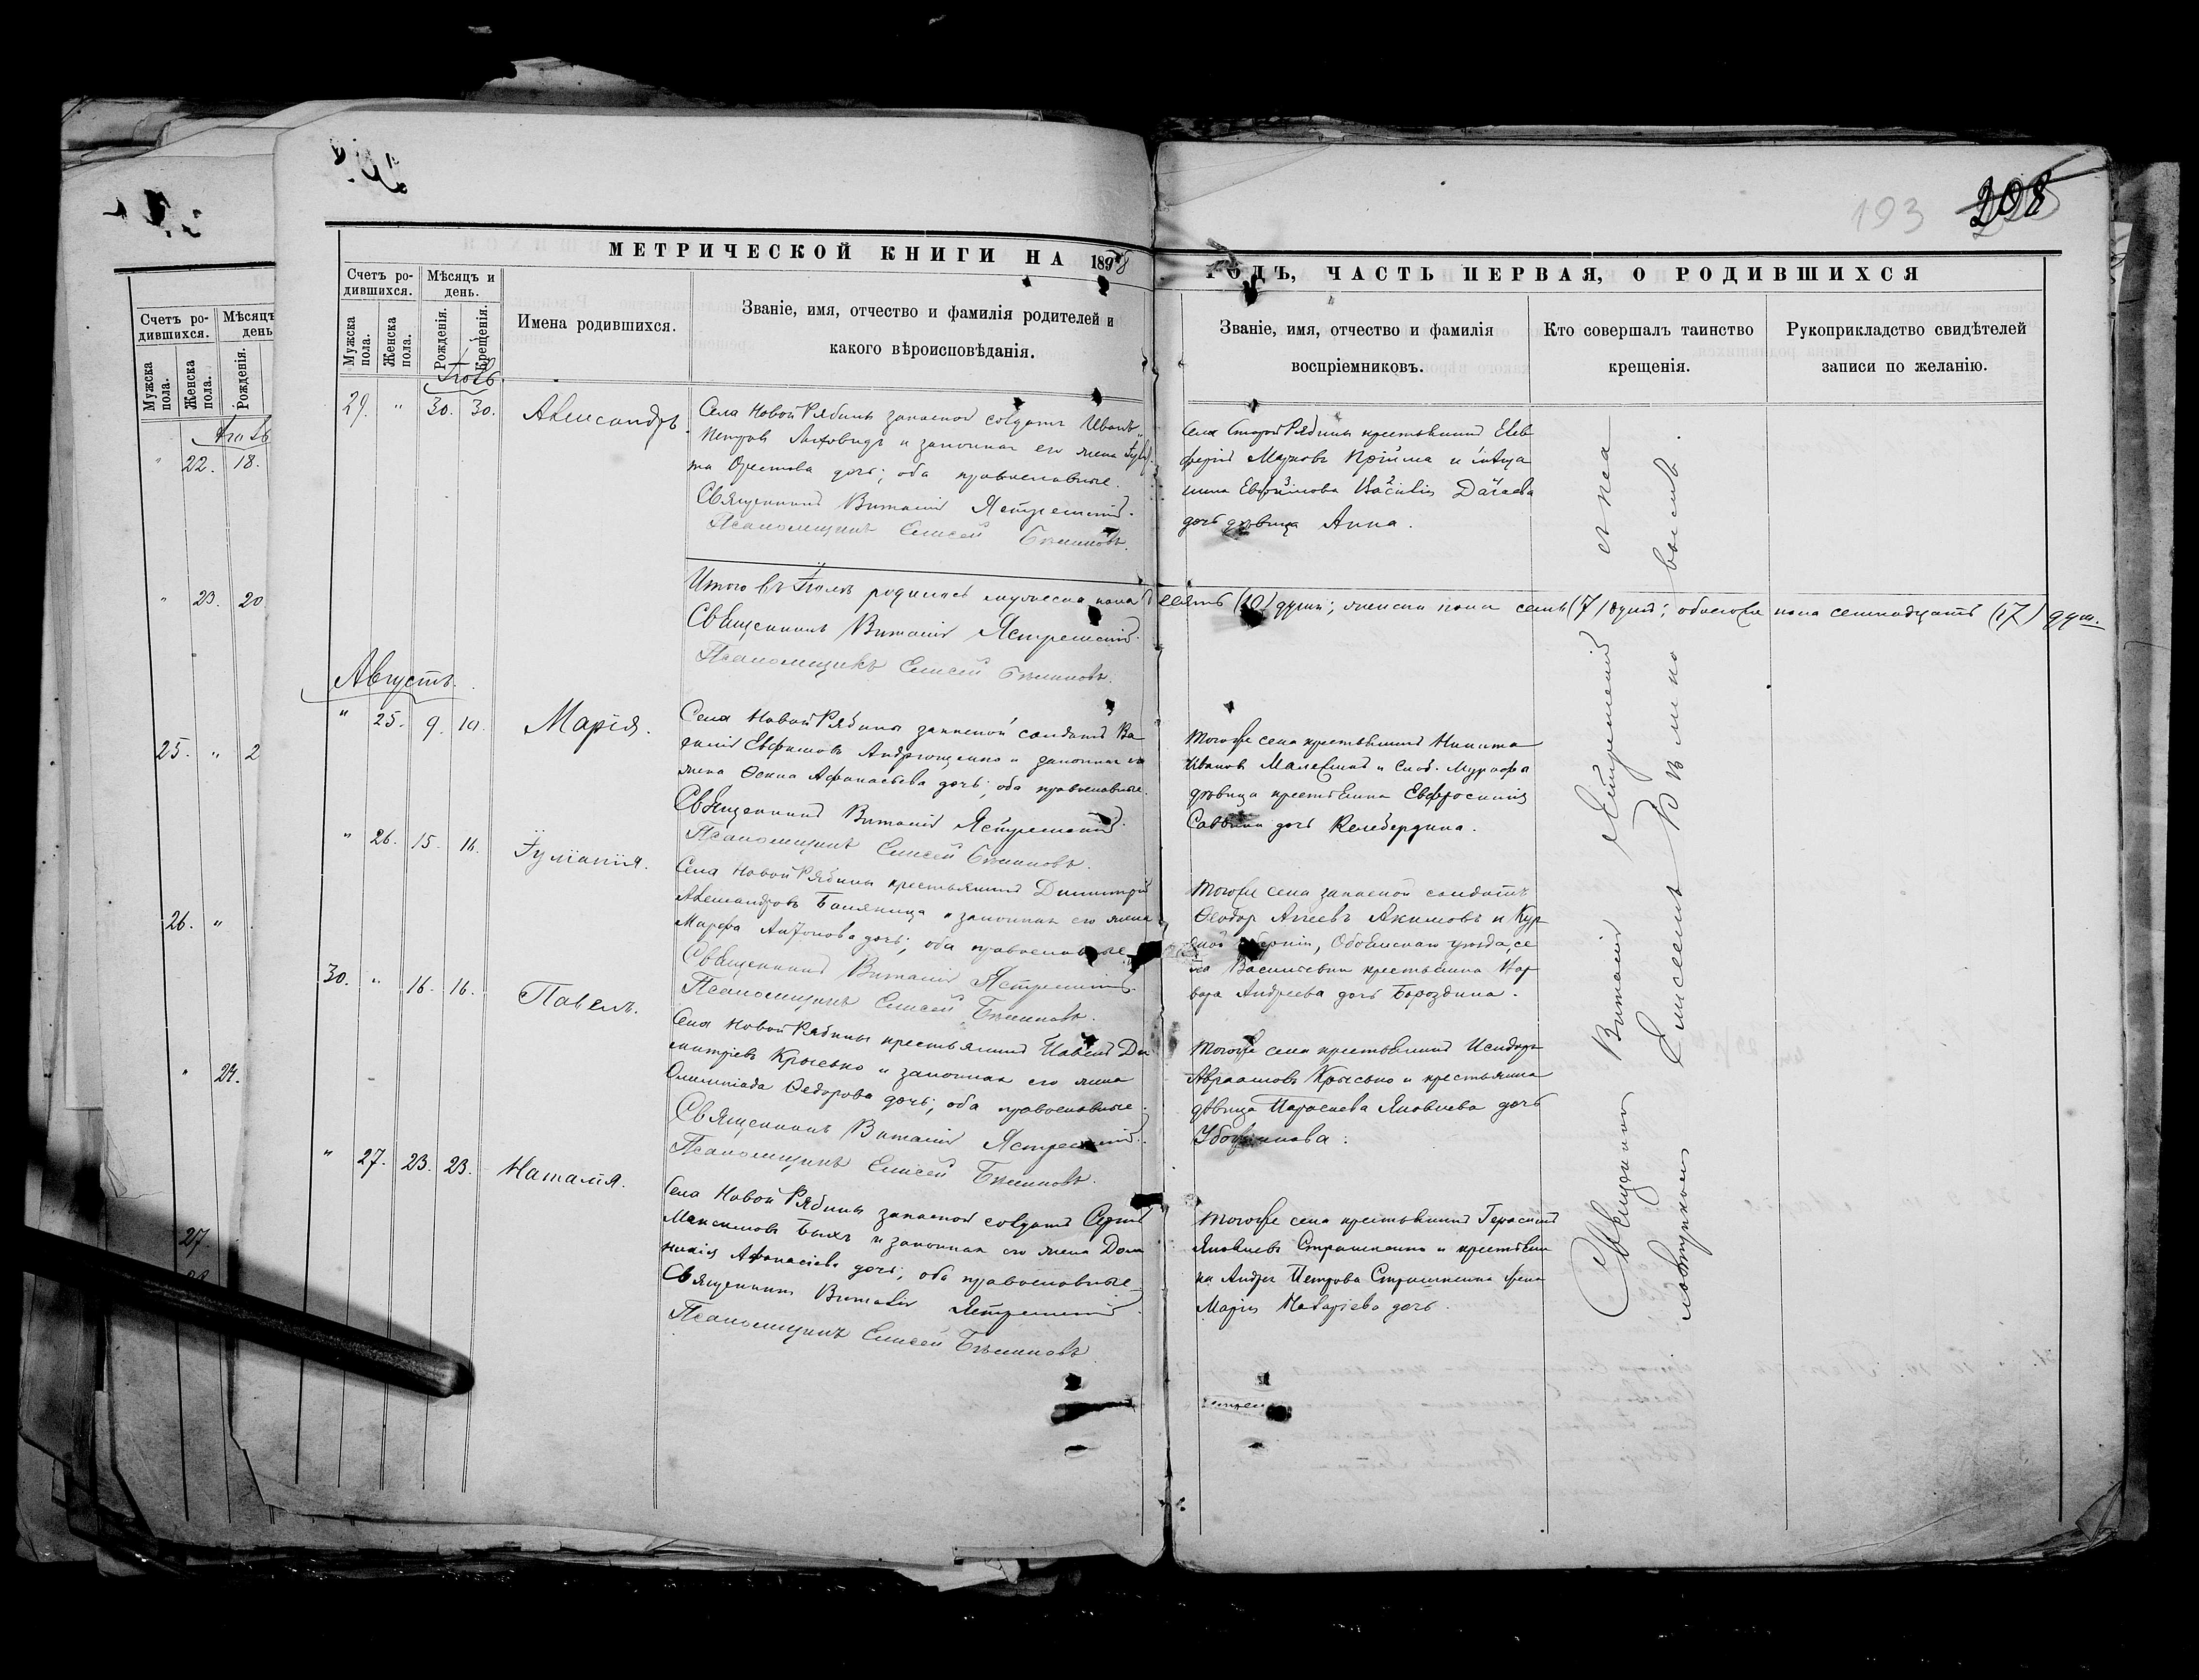 193 208
МЕТРИЧЕСКОЙ КНИГИ НА 1898
ГОДЪ, ЧАСТЬ ПЕРВАЯ, О РОДИВШИХСЯ
Счетъ ро-
дившихся.
Мужска пола.
Женска пола.
Мѣсяцъ
день
Рожденія.
22. 18.
23. 20
25. " 2
26. "
24.
27.
Счетъ ро-
дившихся.
Мужска пола.
Женска пола.
Мѣсяцъ и
день.
Рожденія.
Крещенія.
Имена родившихся.
Званіе, имя, отчество и фамилія родителей и
какого вѣроисповѣданія.
Званіе, имя, отчество и фамилія
воспріемниковъ.
Кто совершалъ таинство
крещенія.
Рукоприкладство свидѣтелей
записи по желанію.
Іюль
29. " 30. 30. Александръ.
Села Новой Рябины запасной солдатъ Иванъ
Петровъ и законная его жена
Орестова дочь; оба православные.
Священникъ Виталій Ястремскій.
Псаломщикъ Елисей
Села Старой Рябины крестьянинъ Елев
ферій Марковъ Пройма и
Василія
дочь дѣвица Анна.
Итого въ Іюлѣ родилось мужеска пола десять (10) душъ; женска пола семь (7) душъ; обоего пола семнадцать (17) душ.
Священникъ Виталій Ястремскій.
Псаломщикъ Елисей
Августъ.
" 25. 9. 10. Марія.
Села Новой Рябины запасной солдатъ Ва
силій Евфимовъ Андрющенко и законная его
жена Аѳанасьева дочь; оба православные.
Священникъ Виталій Ястремскій.
Псаломщикъ Елисей
Тогоже села крестьянинъ Никита
Ивановъ и Слоб. Мурафы
дѣвица крестьянка Евфросинія
Саввина дочь Келебердина.
" 26. 15. 16. Іуліанія.
Села Новой Рябины крестьянинъ Димитрій
Александровъ и законная его жена
Марфа Антонова дочь; оба православные.
Священникъ Виталій Ястремскій.
Псаломщикъ Елисей
Тогоже села запасной солдатъ
Ѳеодоръ Акимовъ и Кур
ской губерніи, Обоянскаго уѣзда, се
ла крестьянка Вар
вара Андреева дочь Бороздина.
30. " 16. 16. Павелъ.
Села Новой Рябины крестьянинъ Павелъ Ди
митріевъ Крысько и законная его жена
Олимпіада Ѳедорова дочь; оба православные.
Священникъ Виталій Ястремскій.
Псаломщикъ Елисей
Тогоже села крестьянинъ Исидоръ
Авраамовъ Крысько и крестьянка
дѣвица Параскева Яковлева дочь
" 27. 23. 23. Наталія.
Села Новой Рябины запасной солдатъ Сергій
Максимовъ Быхъ и законная его жена Дом
никія Аѳанасіева дочь; оба православные.
Священникъ Виталій Ястремскій.
Псаломщикъ Елисей
Тогоже села крестьянинъ Герасимъ
Яковлевъ Страшненко и крестьян
ка Андрея Петрова Страшненка жена
Марія дочь.
Священникъ Виталій Ястремскій съ пса
ломщикомъ Елисеемъ